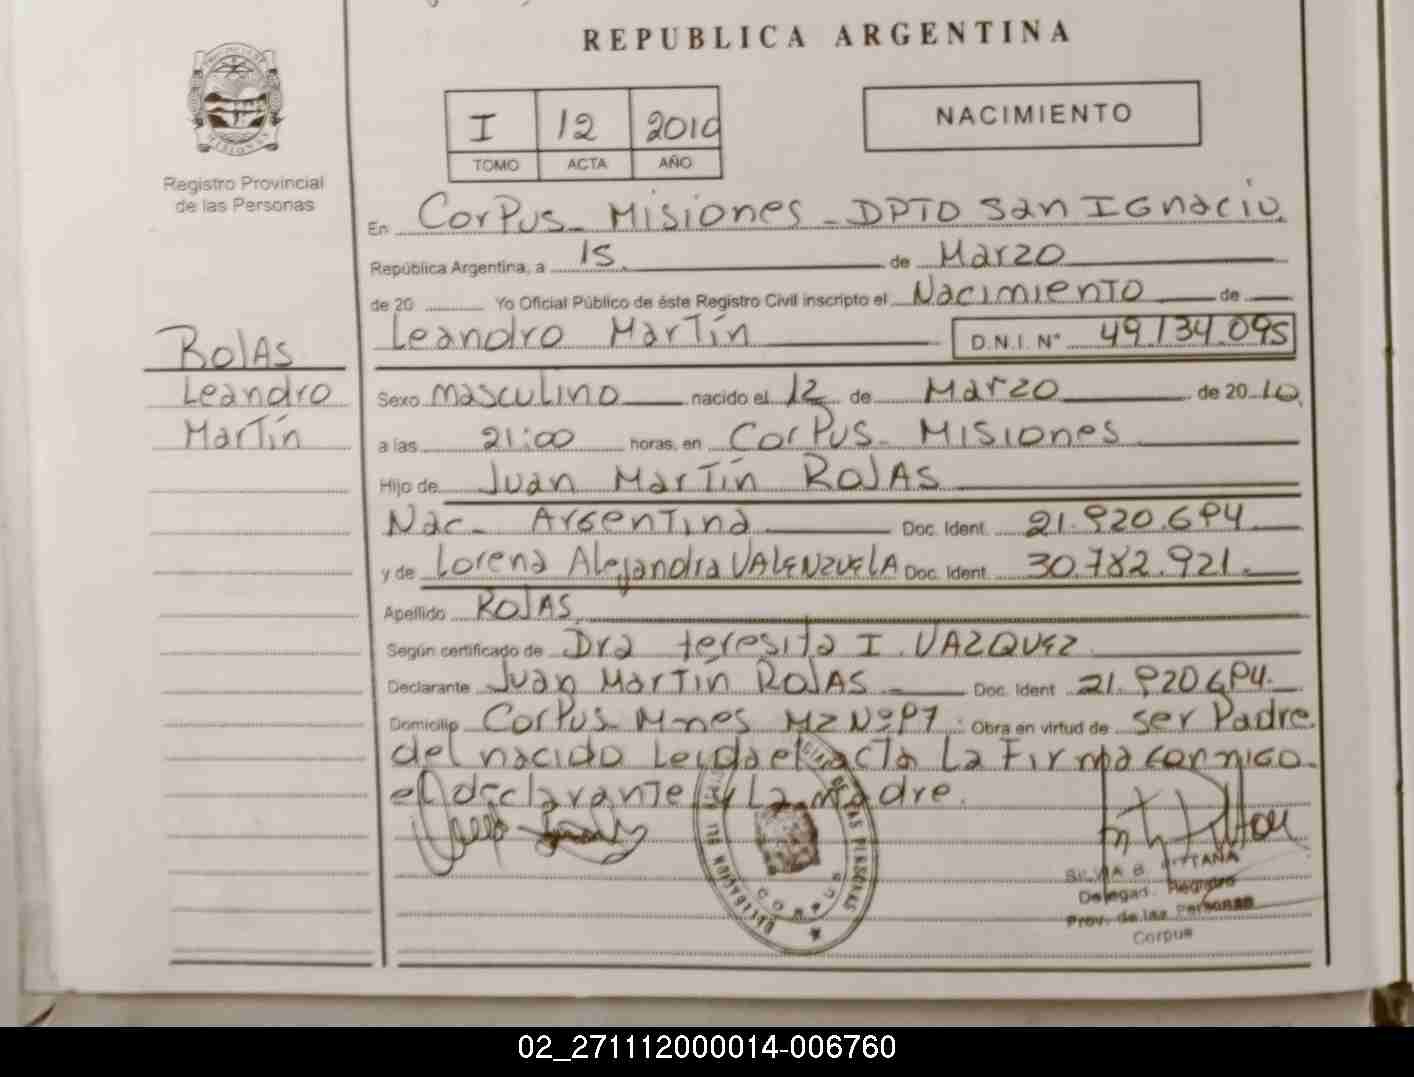 REPUBLICA ARGENTINA
I 12 2010
TOMO ACTA AÑO
NACIMIENTO
Registro Provincial
de las Personas
En Corpus - Misiones - DPTO San Ignacio
República Argentina, a 15 de Marzo
de 20 Yo Oficial Público de éste Registro Civil inscripto el Nacimiento de
Leandro Martín D.N.I. N° 49.134.095
ROJAS
Leandro
Martín
Sexo masculino nacido el 12 de Marzo de 2010
a las 21:00 horas, en Corpus - Misiones
Hijo de Juan Martín ROJAS
Nac - Argentina Doc. Ident. 21.920.694
y de Lorena Alejandra VALENZUELA Doc. Ident. 30.782.921
Apellido ROJAS
Según certificado de Dra teresita I. VAZQUEZ
Declarante Juan Martín ROJAS Doc. Ident 21.920.694
Domicilio Corpus - M-nes MZ Nº P7 Obra en virtud de ser Padre
del nacido Leida el acta La Firma conmigo
el declarante y La madre.
DELEGACION
DE LAS PERSONAS
CORPUS
SILVIA B. PITTANA
Delegad. Registro
Prov. de las Personas
Corpus
02_271112000014-006760